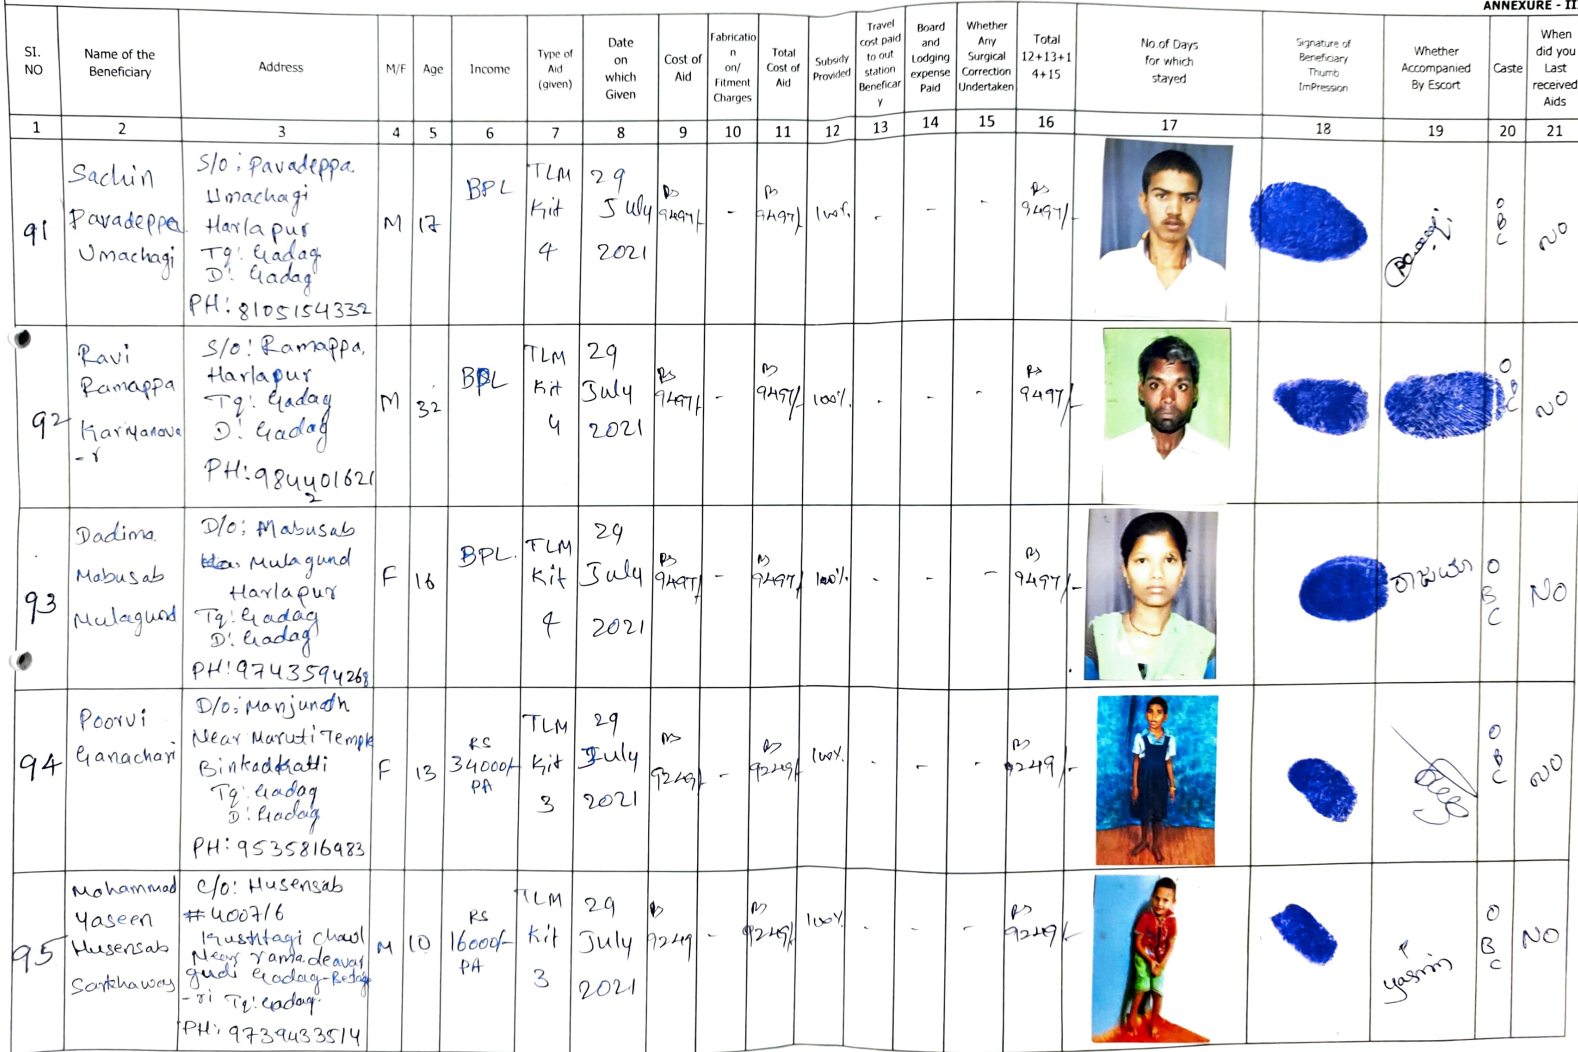 ANNEXURE - II
SI. NO
Name of the Beneficiary
Address
M/F
Age
Income
Type of Aid (given)
Date on which Given
Cost of Aid
Fabricatio n on/ Fitment Charges
Total Cost of Aid
Subsidy Provided
Travel cost paid to out station Beneficar y
Board and Lodging expense Paid
Whether Any Surgical Correction Undertaken
Total 12+13+1 4+15
No.of Days for which stayed
Signature of Beneficiary Thumb ImPression
Whether Accompanied By Escort
Caste
When did you Last received Aids
1 2 3 4 5 6 7 8 9 10 11 12 13 14 15 16 17 18 19 20 21
91
Sachin
Pavadeppa
Umachagi
S/o: Pavadeppa
Umachagi
Harlapur
Tq: Gadag
D: Gadag
PH: 8105154332
M
17
BPL
TLM
Kit
4
29
July
2021
Rs
9497/-
-
Rs
9497/-
100%
-
-
-
Rs
9497/-
OBC
NO
92
Ravi
Ramappa
Kariyanava
-r
S/o: Ramappa,
Harlapur
Tq: Gadag
D: Gadag
PH: 984401621
2
M
32
BPL
TLM
Kit
4
29
July
2021
Rs
9497/-
-
Rs
9497/-
100%
-
-
-
Rs
9497/-
OBC
NO
93
Dadima
Mabusab
Mulagund
D/o: Mabusab
Mulagund
Harlapur
Tq: Gadag
D: Gadag
PH: 9743594268
F
16
BPL.
TLM
Kit
4
29
July
2021
Rs
9497/-
-
Rs
9497/-
100%
-
-
-
Rs
9497/-
OBC
NO
94
Poorvi
Ganachari
D/o: Manjunath
Near Maruti Temple
Binkadkatti
Tq: Gadag
D: Gadag
PH: 9535816983
F
13
RS
34000/-
PA
TLM
Kit
3
29
July
2021
Rs
9249/-
-
Rs
9249/-
100%
-
-
-
Rs
9249/-
OBC
NO
95
Mohammad
Yaseen
Husensab
C/o: Husensab
#4007/6
Kushtagi Chawl
Near ramadeavar
gudi Gadag-Betag
-ri Tq: Gadag.
PH: 9739433514
M
10
RS
16000/-
PA
TLM
Kit
3
29
July
2021
Rs
9249
-
Rs
9249/-
100%
-
-
-
Rs
9249/-
yasmin
OBC
NO